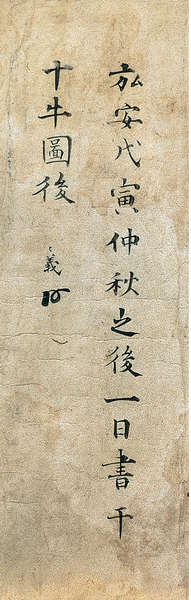 弘安戊寅仲秋之後一日書于
十牛圖後
義